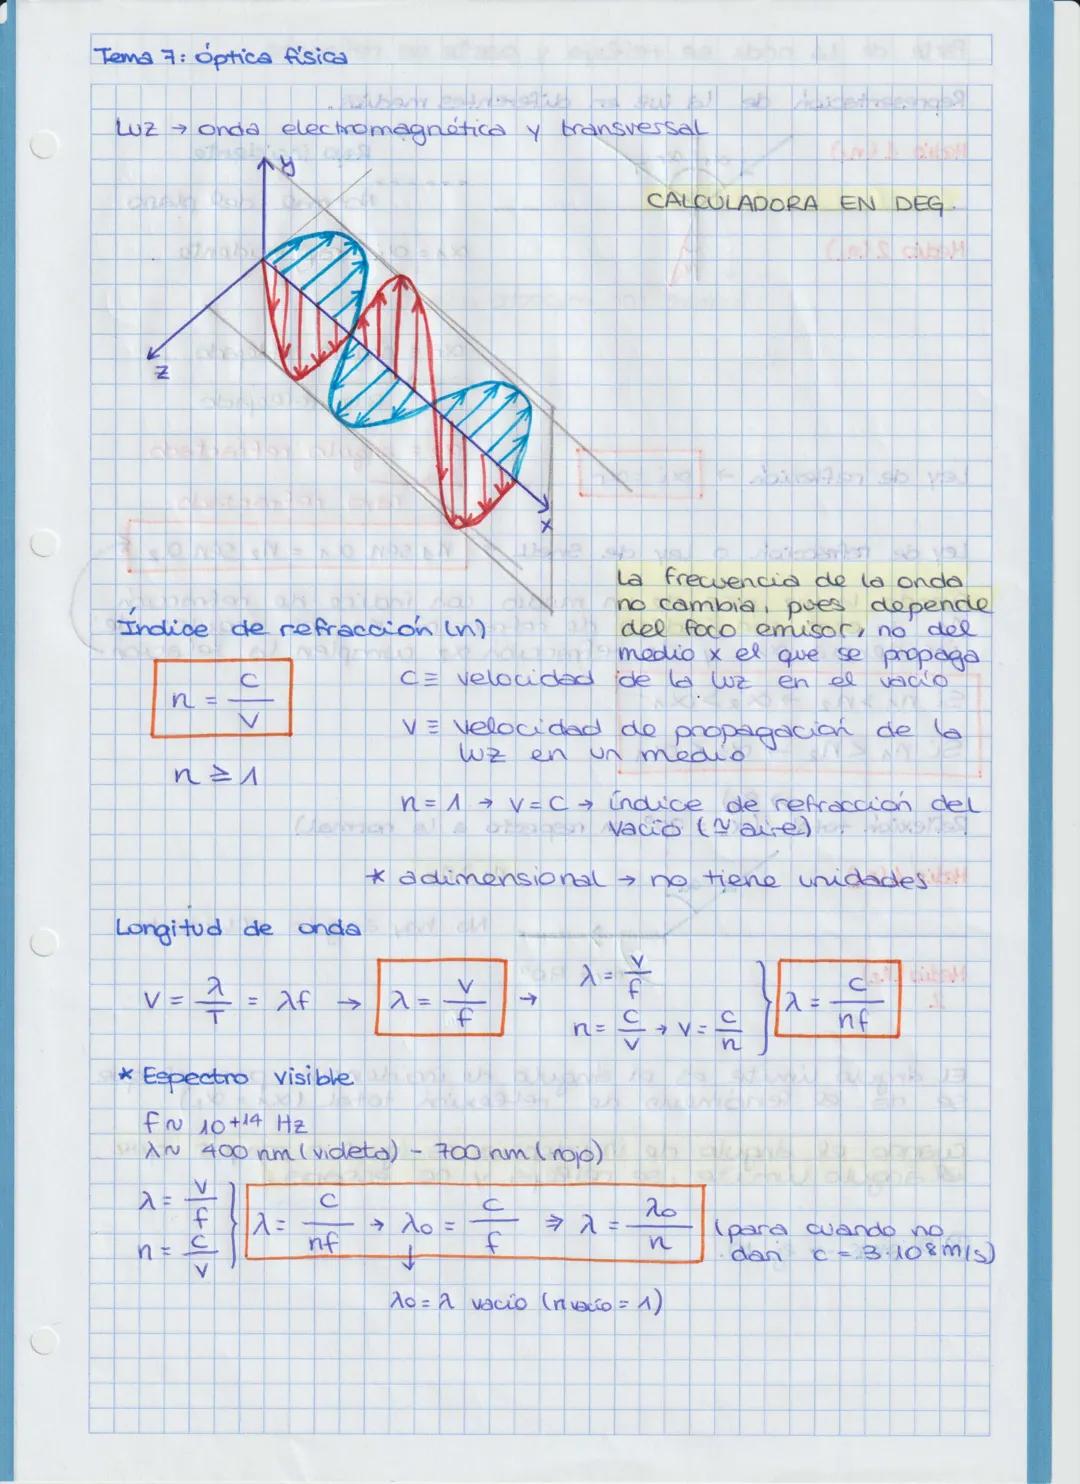 Tema 7: óptica física
Luz → onda electromagnética y transversal
y
CALCULADORA EN DEG.
z
x
La frecuencia de la onda
no cambia, pues depende
del foco emisor, no del
medio x el que se propaga
Índice de refracción (n)
n = c/v
n ≥ 1
C ≡ velocidad de la luz en el vacío
V ≡ velocidad de propagación de la
luz en un medio
n = 1 → v = c → índice de refracción del
vacío (≃ aire)
* adimensional → no tiene unidades
Longitud de onda
v = λ/T = λf → λ = v/f → λ = v/f
n = c/v → v = c/n } λ = c/nf
* Espectro visible
f ~ 10+14 Hz
λ ~ 400 nm (videta) - 700 nm (rojo)
λ = v/f
n = c/v } λ = c/nf → λ0 = c/f ⇒ λ = λ0/n (para cuando no
dan c = 3·108 m/s)
↓
λ0 = λ vacío (n vacío = 1)